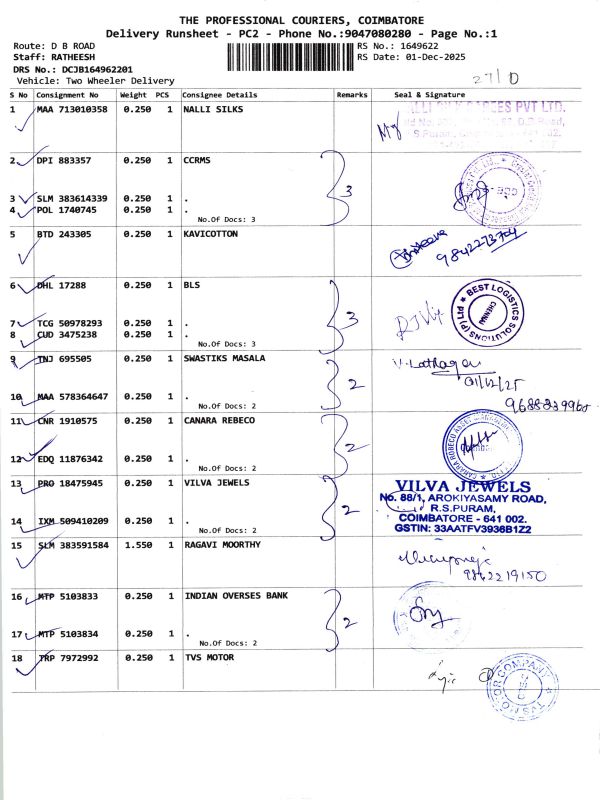 THE PROFESSIONAL COURIERS, COIMBATORE
Delivery Runsheet - PC2 - Phone No.:9047080280 - Page No.:1
Route: D B ROAD RS No.: 1649622
Staff: RATHEESH RS Date: 01-Dec-2025
DRS No.: DCJB164962201
Vehicle: Two Wheeler Delivery
S No Consignment No Weight PCS Consignee Details Remarks Seal & Signature
1 MAA 713010358 0.250 1 NALLI SILKS
2 DPI 883357 0.250 1 CCRMS
3 SLM 383614339 0.250 1 .
3
4 POL 1740745 0.250 1 .
No.Of Docs: 3
5 BTD 243305 0.250 1 KAVICOTTON
9842273704
6 DHL 17288 0.250 1 BLS
BEST LOGISTICS SOLUTIONS (P) LTD
CHENNAI
7 TCG 50978293 0.250 1 .
3
8 CUD 3475238 0.250 1 .
No.Of Docs: 3
9 TNJ 695505 0.250 1 SWASTIKS MASALA
2
01/12/25
10 MAA 578364647 0.250 1 .
No.Of Docs: 2
11 CNR 1910575 0.250 1 CANARA REBECO
2
12 EDQ 11876342 0.250 1 .
No.Of Docs: 2
13 PRO 18475945 0.250 1 VILVA JEWELS
2
14 IXM 509410209 0.250 1 .
No.Of Docs: 2
VILVA JEWELS
No. 88/1, AROKIYASAMY ROAD,
R.S.PURAM,
COIMBATORE - 641 002.
GSTIN: 33AATFV3936B1Z2
15 SLM 383591584 1.550 1 RAGAVI MOORTHY
9842219150
16 MTP 5103833 0.250 1 INDIAN OVERSES BANK
2
17 MTP 5103834 0.250 1 .
No.Of Docs: 2
18 TRP 7972992 0.250 1 TVS MOTOR
TVS MOTOR COMPANY